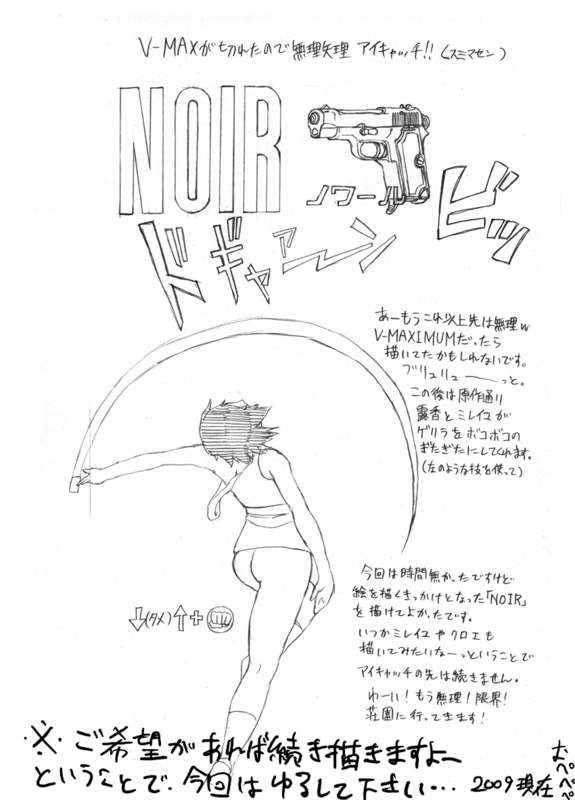 V-MAXが切れたので無理矢理アイキャッチ!!(スミマセン)
NOIR
ノワール
ビッ
ドギャァーン
あーもうこれ以上先は無理w
V-MAXIMUMだったら
描いてたかもしれないです。
ブリュリューーっと。
この後は原作通り
霧香とミレイユが
ゲリラをボコボコの
ぎたぎたにしてくれます。
(左のような技を使って)
↓(タメ)↑+
今回は時間無かったですけど
絵を描くきっかけとなった「NOIR」
を描けてよかったです。
いつかミレイユやクロエも
描いてみたいなーっということで
アイキャッチの先は続きません。
わーい!もう無理!限界!
荘園に行ってきます!
・※・ご希望があれば続き描きますよー
ということで、今回はゆるして下さい… 2009現在
おぺぺぺ